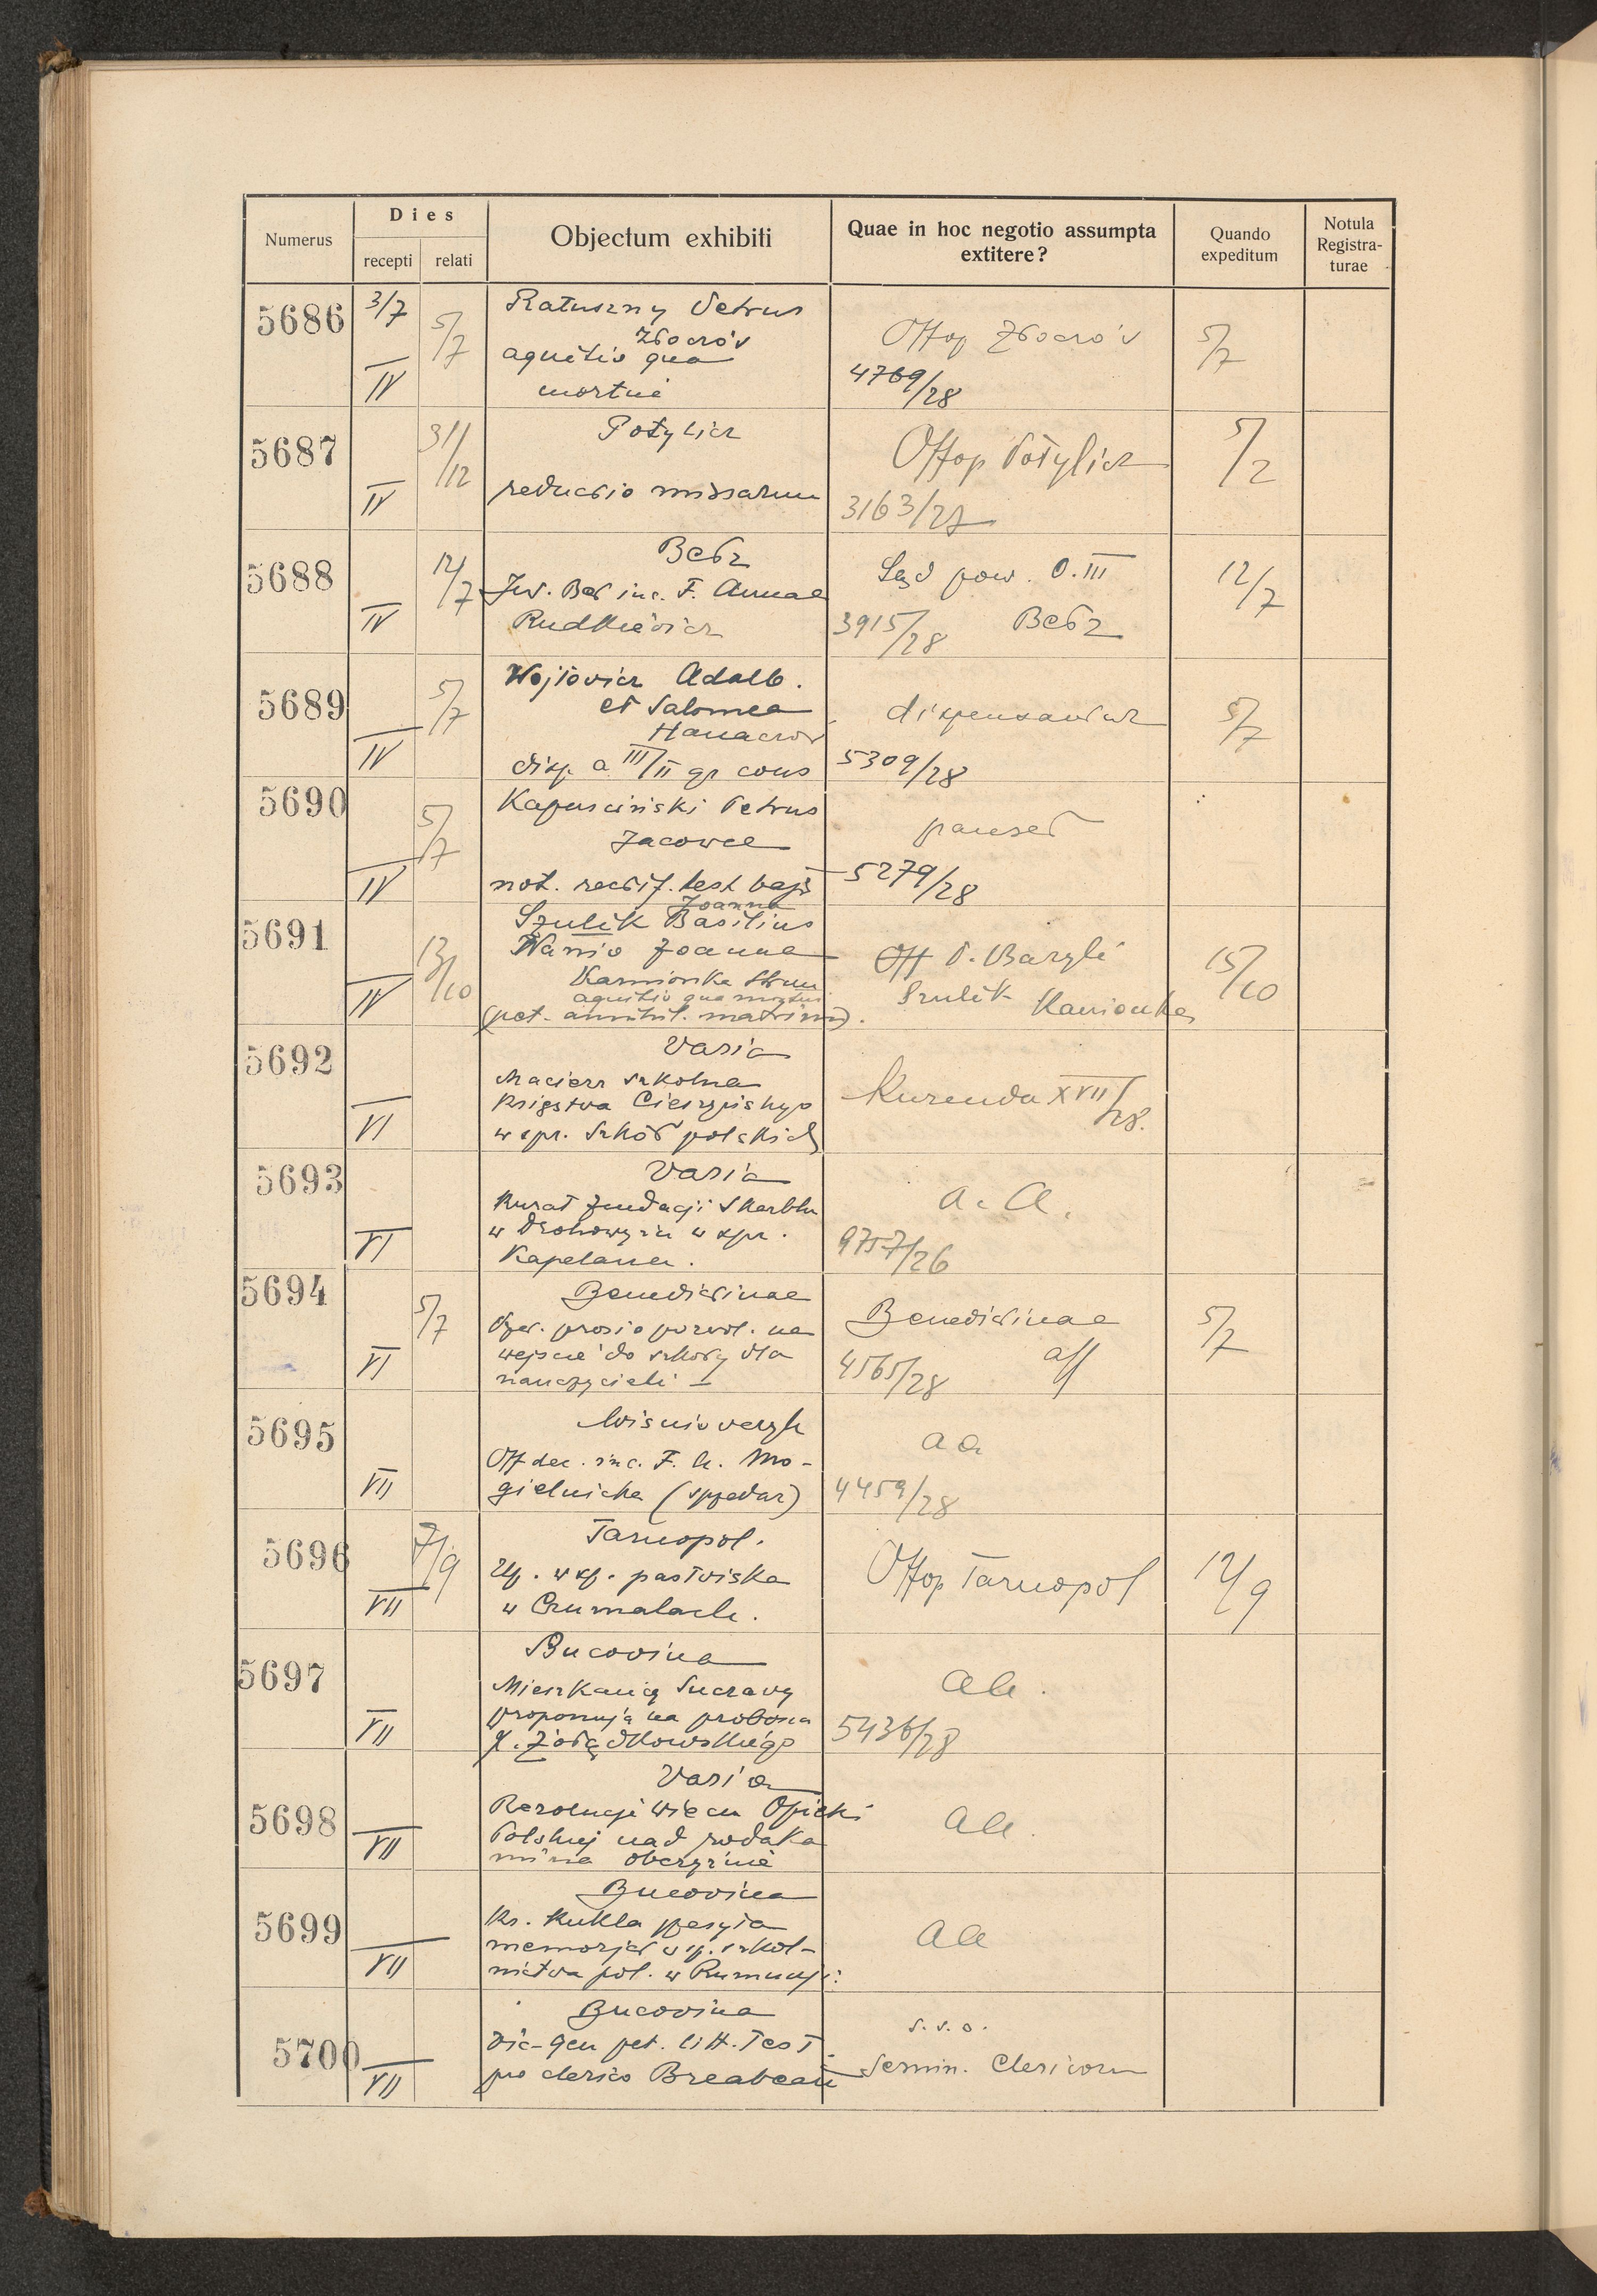 Numerus
Dies
recepti
relati
Objectum exhibiti
Quae in hoc negotio assumpta
extitere?
Quando
expeditum
Notula
Registra-
turae
5686
3/7
IV
5/7
Ratuszny Petrus
Zborów
agnitio qua
mortui
Offop Zborów
4769/28
5/7
5687
IV
31/12
Potylicz
reductio missarum
Offop Potylicz
3163/27
5/2
5688
IV
12/7
Bełz
Inv. Ben inc. F. Annae
Rudkiewicz
Sąd pow. O.III
3915/28 Bełz
12/7
5689
IV
5/7
Wojtowicz Adalb.
et Salomea
Hanaczów
disp. a III/II gr cons
dispensantur
5309/28
5/7
5690
IV
5/7
Kapuściński Petrus
Jacowce
not. rectif. test bapt
pauset
5279/28
5691
IV
13/10
Joanna
Szulik Basilius
Wanio Joanna
Kamionka Strum
agnitio qua mortui
(pet. annihil. matrim).
Off P. Bazyli
Szulik Kamionka
15/10
5692
VI
Varia
Macierz szkolna
Księstwa Cieszyńskiego
w spr. szkół polskich
Kurenda XVII/28.
5693
VI
Varia
Kurat fundacji Skarbka
w Drohowyżu w spr.
Kapelana.
a. a.
9757/26
5694
VI
5/7
Benedictinae
prosi o pozwol. na
wejście do szkoły dla
nauczycieli
Benedictinae
4565/28 aff
5/7
5695
VII
Wiśniowczyk
Off dec. inc. F. h. Mo-
gielnicka (sprzedaż)
a a
4459/28
5696
VII
7/9
Tarnopol.
Up. w sp. pastwiska
w Czumalach.
Offop Tarnopol
12/9
5697
VII
Bucovina
Mieszkańcy Suczawy
proponują na probosza
X. Żołądkowskiego
aa.
5436/28
5698
VII
Varia
Rezolucje wiecu Opieki
Polskiej nad rodaka
mi na obczyźnie
aa.
5699
VII
Bucovina
Ks. Kukla przesyła
memorjał w sp. szkol-
nictwa pol. w Rumunji.
aa
5700
VII
Bucovina
Vic-Gen pet. litt. Test.
pro clerico Breabean
s. s. o.
Semin. Clericorum